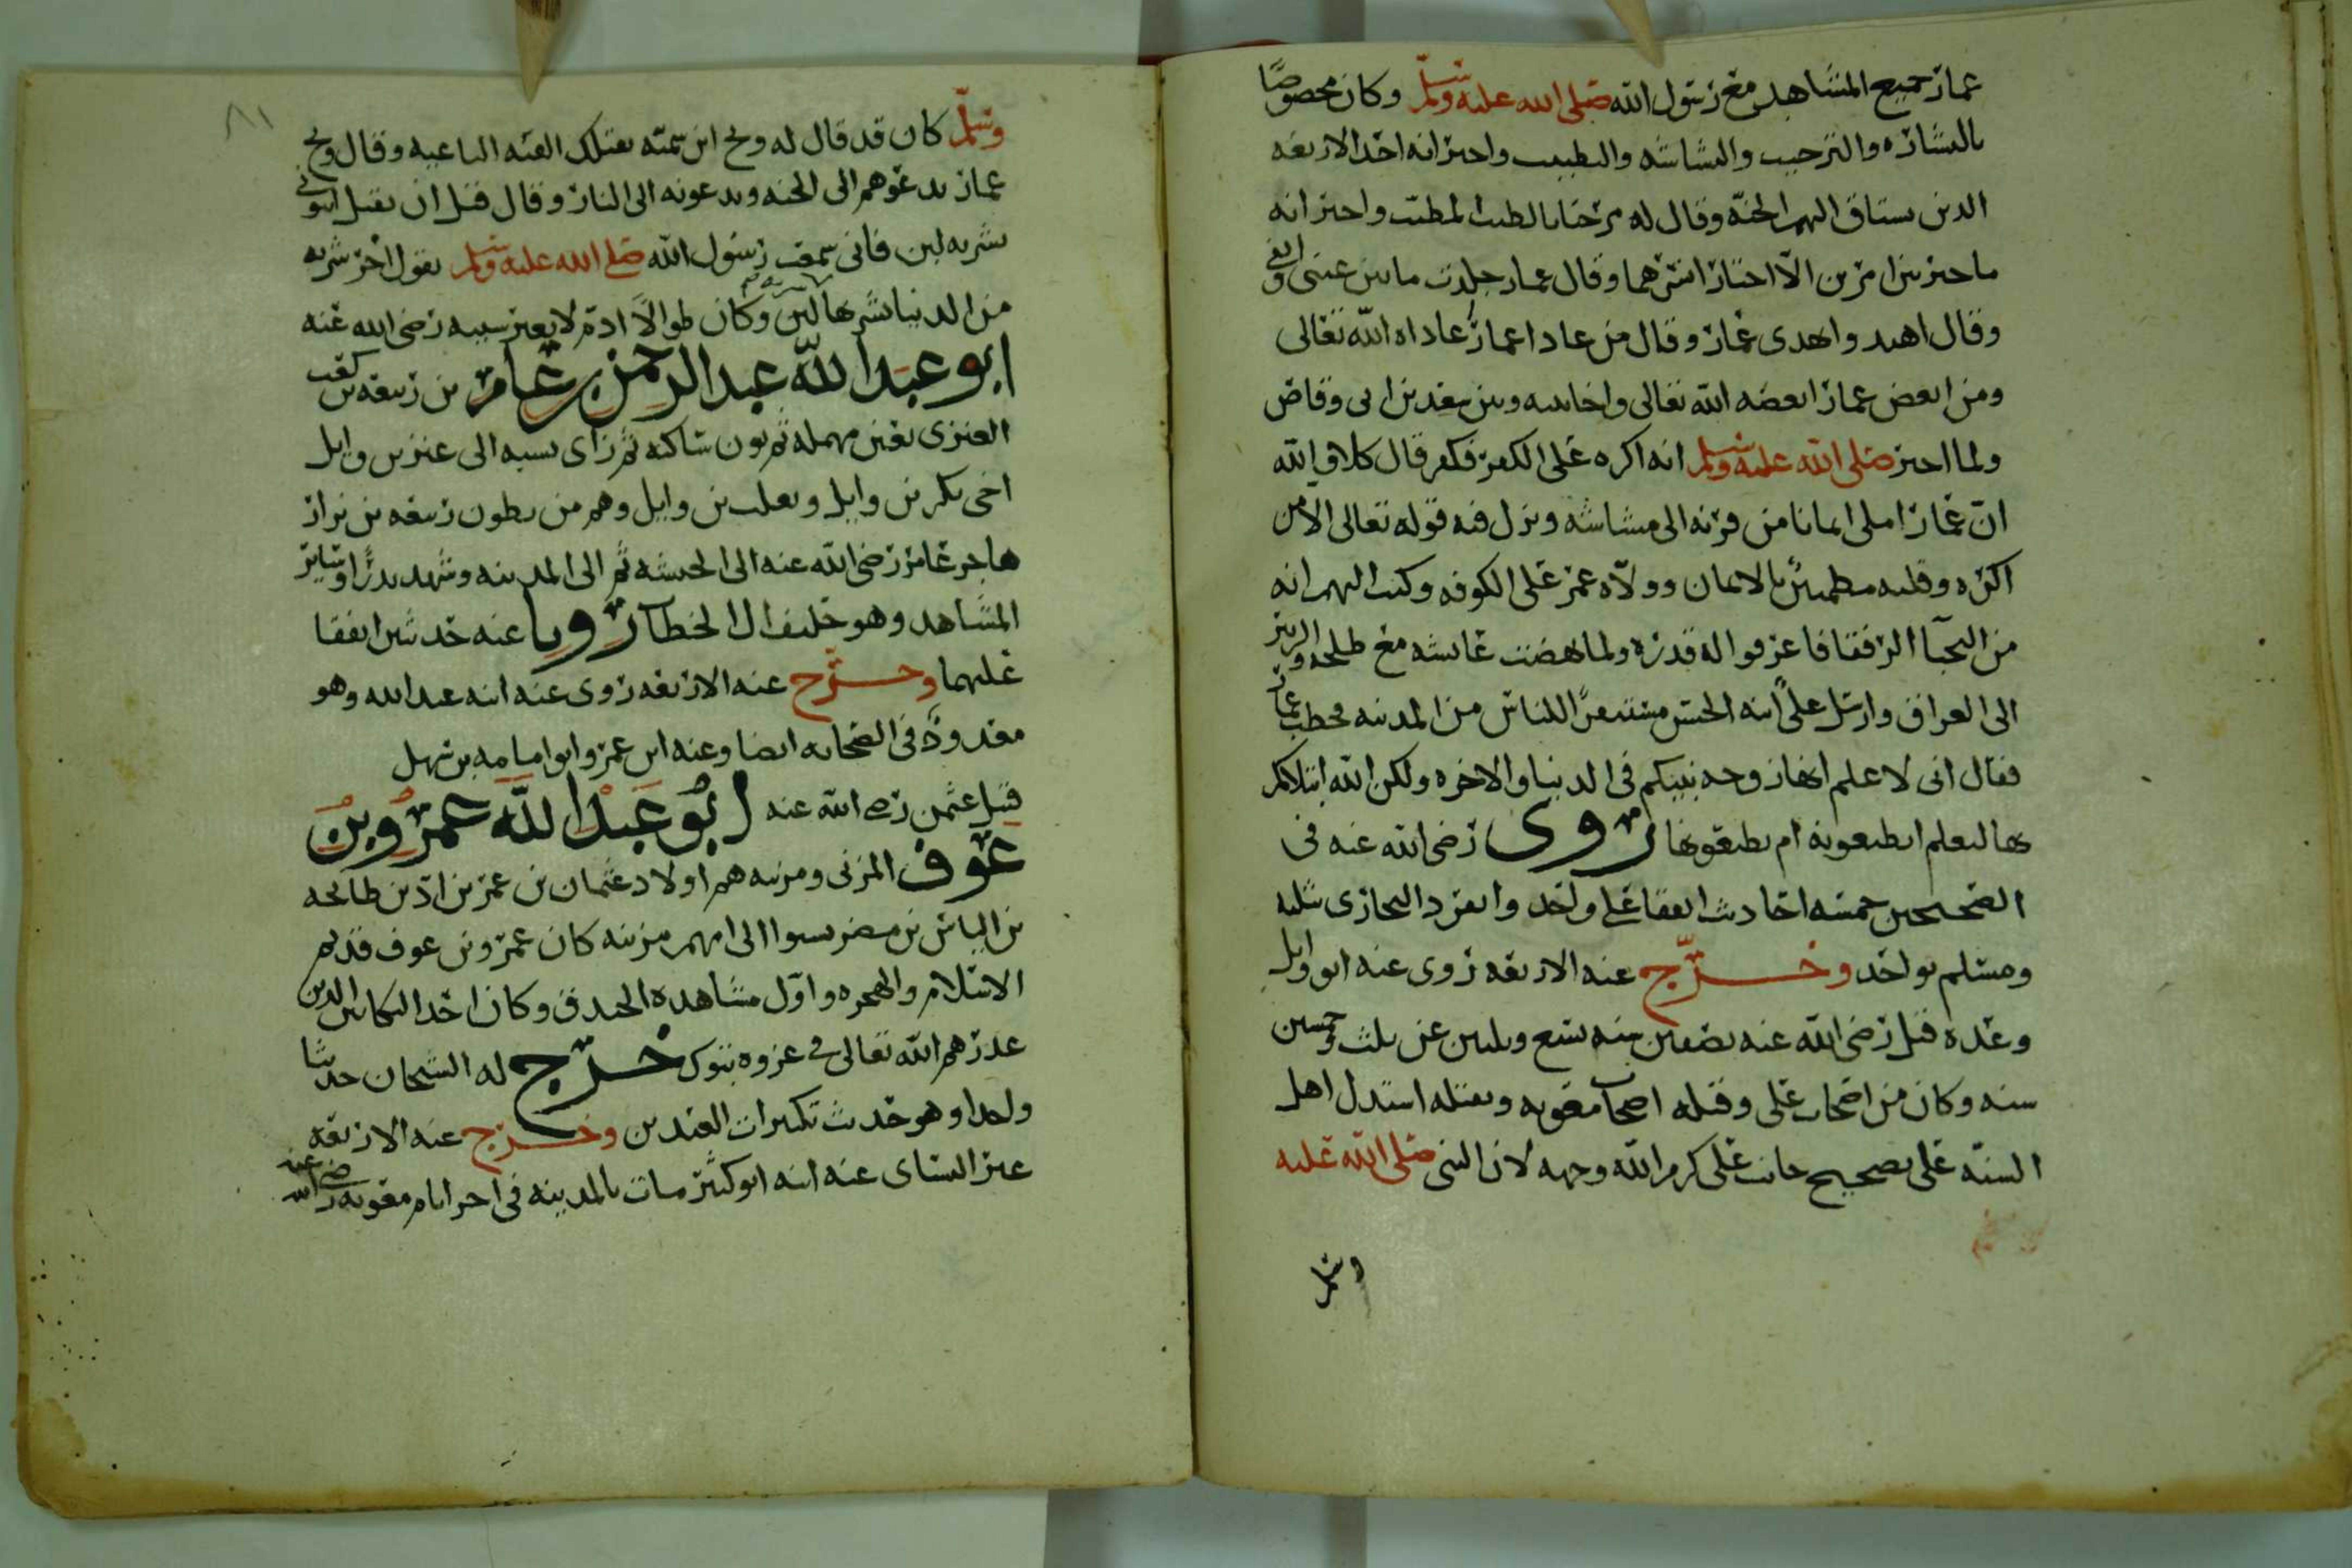 عمار جميع المشاهد مع رسول الله صلى الله عليه وسلم وكان مخصوصا
بالبشارة والترحيب والبشاشه والتطييب واخبر انه احد الاربعه
الذين تشتاق اليهم الجنة وقال له مرحبا بالطيب المطيب واخبر انه
ما خير بين امرين الا اختار ايسرهما وقال عمار جلدت ما بين عيني وانفي
وقال اهتدوا بهدي عمار وقال من عادا عمارا عاداه الله تعالى
ومن ابغض عمار ابغضه الله تعالى واخا بينه وبين سعد بن ابي وقاص
ولما اخبر صلى الله عليه وسلم انه اكره على الكفر فكفر قال كلا والله
ان عمارا ملي ايمانا من قرنه الى مشاشه ونزل فيه قوله تعالى الا من
اكره وقلبه مطمئن بالايمان وولاه عمر على الكوفه وكتب اليهم انه
من النجبا الرفقا فاعرفوا له قدره ولما نهضت عائشه مع طلحه والزبير
الى العراق وارسل علي ابنه الحسن مستنفرا للناس من المدينه فخطب عمار
فقال اني لا علم انها زوجه نبيكم في الدنيا والاخره ولكن الله ابتلاكم
بها ليعلم ايطيعونه ام يطيعونها روى رضي الله عنه في
الصحيحين خمسه احاديث اتفقا على واحد وانفرد البخاري بثلثه
ومسلم بواحد وخرج عنه الاربعه روى عنه ابو وايل
وعده قتل رضي الله عنه بصفين سنه سبع وثلثين عن ثلث وتسعين
سنه وكان من اصحاب علي وقتله اصحاب معويه وبقتله استدل اهل
السنة على تصحيح جانب علي كرم الله وجهه لان النبي صلى الله عليه
وسلم
٨١
وسلم كان قد قال له ويح ابن سميه تقتلك الفئه الباغيه وقال ويح
عمار يدعوهم الى الجنه ويدعونه الى النار وقال قبل ان يقتل ايتوني
بشربه لبن فاني سمعت رسول الله صلى الله عليه وسلم يقول اخر شربه
من الدنيا تشربها لبن وكان طوالا ادم لا يغير شيبه رضي الله عنه
ابو عبد الله عبد الرحمن بن عامر بن ربيعه بن كعب
العنزي بعين مهمله ثم نون ساكنه ثم زاي نسبه الى عنز بن وايل
اخي بكر بن وايل وتغلب بن وايل وهم من بطون ربيعه بن نزار
هاجر عامر رضي الله عنه الى الحبشه ثم الى المدينه وشهد بدرا وسائر
المشاهد وهو حليف ال الخطاب رويا عنه حديثين اتفقا
عليهما وخرج عنه الاربعه روى عنه ابنه عبد الله وهو
معدود في الصحابه ايضا وعنه ابن عمر وابو امامه بن سهل
قبل عثمن رضي الله عنه ابو عبد الله عمرو بن
عوف المزني ومزينه هم اولاد عثمان بن عمر بن اد بن طابخه
بن الياس بن مضر نسبوا الى امهم مزينه كان عمرو بن عوف قديم
الاسلام والهجره واول مشاهده الخندق وكان احد البكائين الذين
عذرهم الله تعالى في غزوه تبوك خرج له الشيخان حديثا
واحدا وهو حديث تكبيرات العيدين وخرج عنه الاربعه
غير النسائي عنه ابنه ابو كثير مات بالمدينه في اخر ايام معويه رضي الله عنه